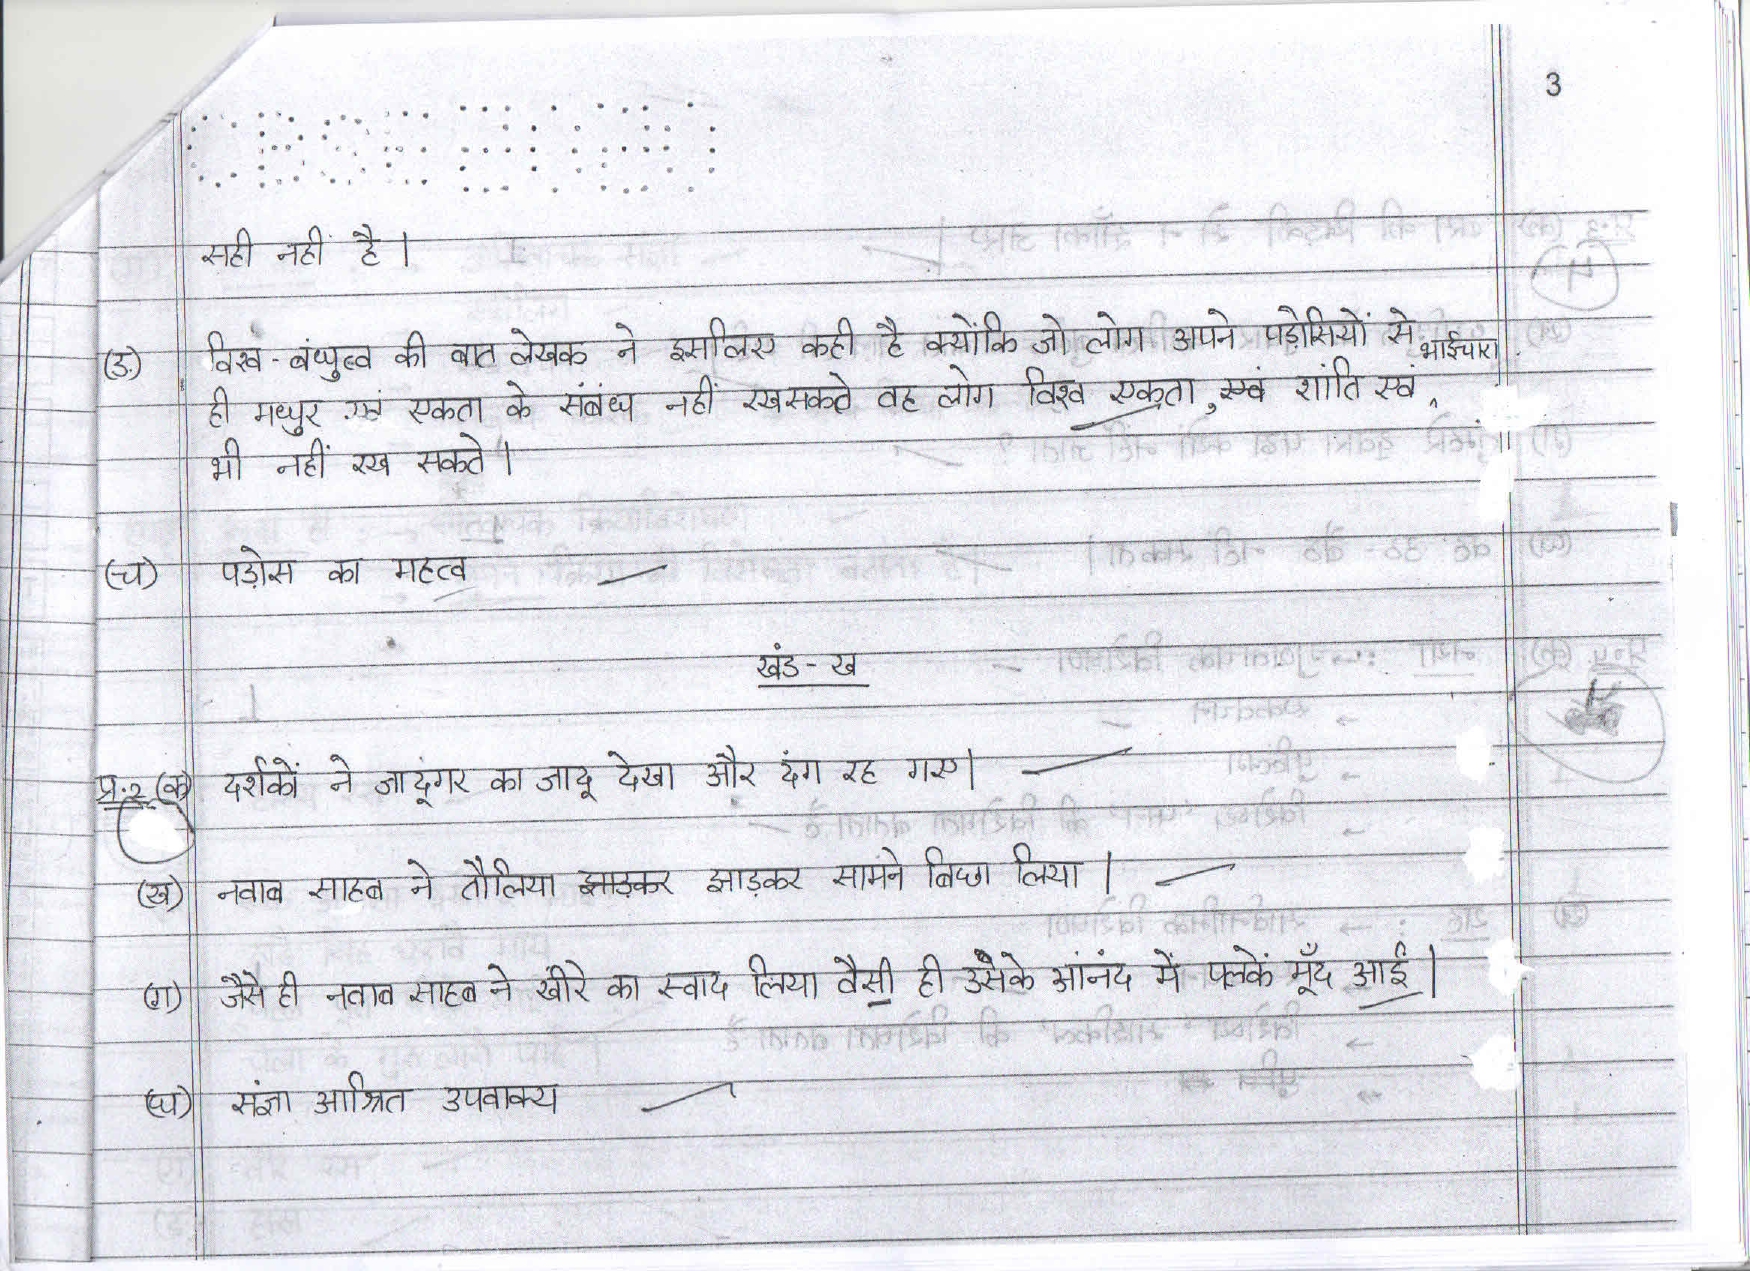 3
सही नहीं है।
(ङ) विश्व-बंधुत्व की बात लेखक ने इसलिए कही है क्योंकि जो लोग अपने पड़ोसियों से
ही मधुर एवं एकता के संबंध नहीं रख सकते वह लोग विश्व एकता, एवं शांति एवं भाईचारा
भी नहीं रख सकते।
(च) पड़ोस का महत्व
खंड-ख
प्र.2 (क) दर्शकों ने जादूगर का जादू देखा और दंग रह गए।
(ख) नवाब साहब ने तौलिया झाड़कर झाड़कर सामने बिछा लिया।
(ग) जैसे ही नवाब साहब ने खीरे का स्वाद लिया वैसी ही उसके आंनंद में पलकें मूँद आई।
(घ) संज्ञा आश्रित उपवाक्य